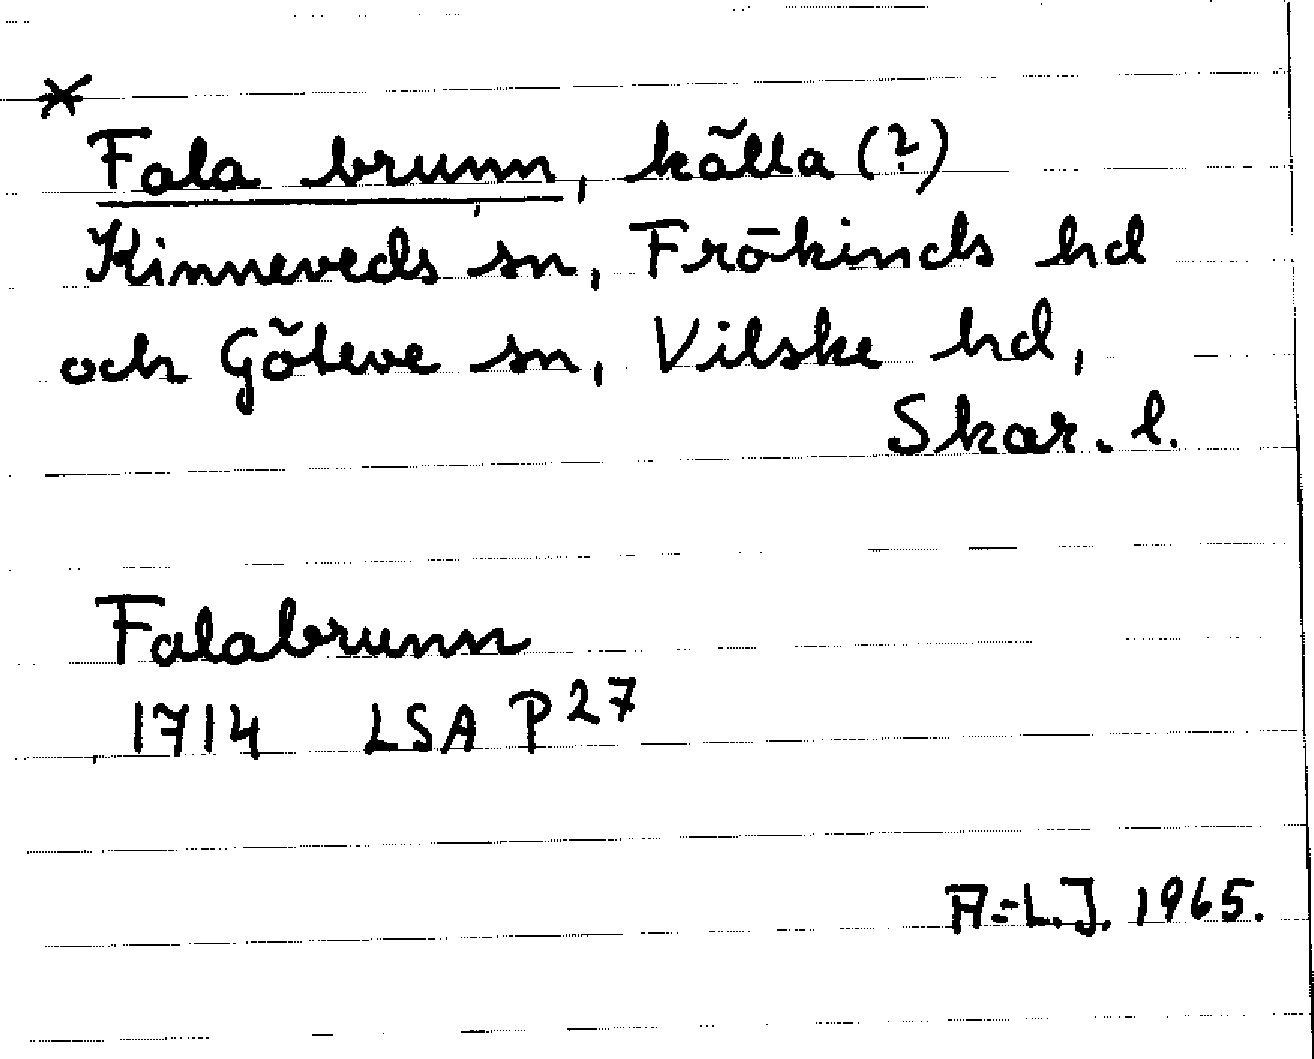 *
Fala brunn, källa (?)
Kinneveds sn, Frökinds hd
och Göteve sn, Vilske hd,
Skar. l.
Falabrunn
1714 LSA P 27
A-L.J. 1965.